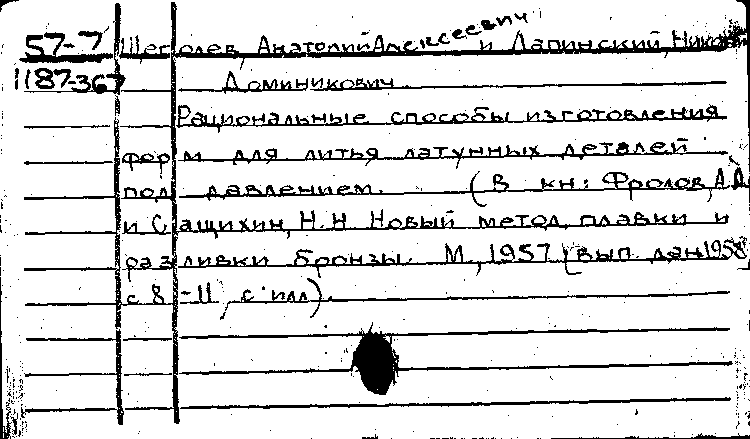 57-7 Щеголев, Анатолий Алексеевич и Лапинский, Николай
1187-367 Доминикович.
Рациональные способы изготовления
форм для литья латунных деталей
под давлением. (В кн: Фролов, А.Д.
и Сащихин, Н.Н Новый метод плавки и
разливки бронзы. М, 1957 (вып дан 1958,
с 8-11, с илл).